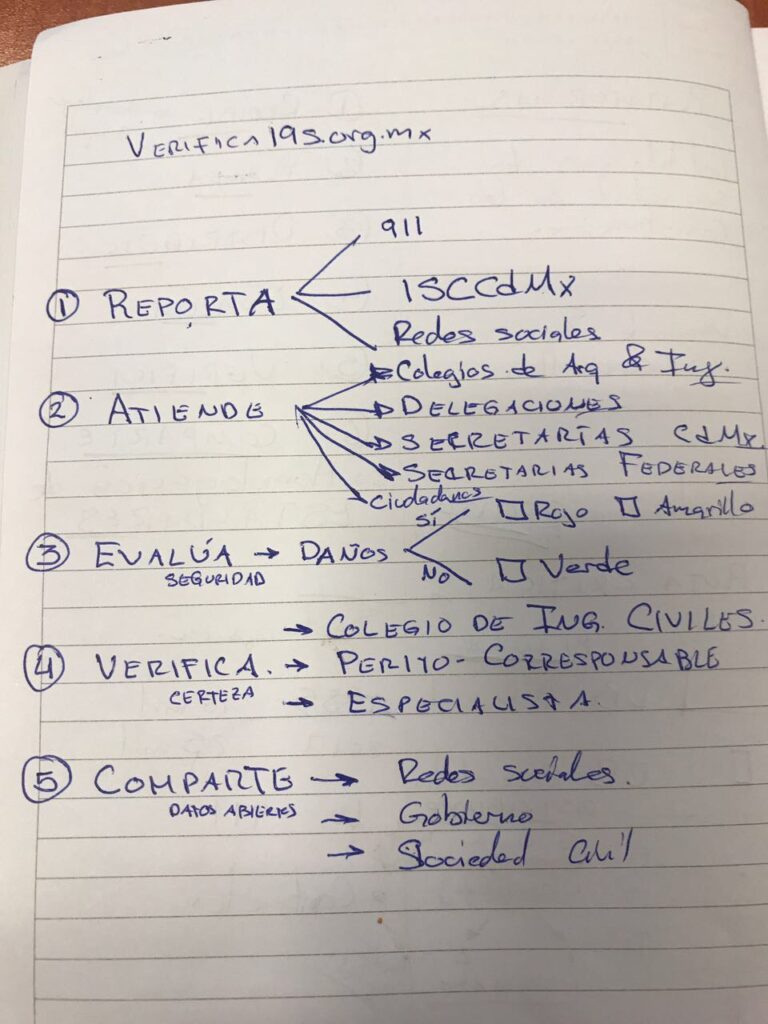 VERIFICA19S.org.mx
911
① REPORTA ISCCdMx
Redes sociales
Colegios de Arq & Ing.
② ATIENDE DELEGACIONES
SECRETARÍAS CdMx.
SECRETARIAS FEDERALES
Ciudadanos
SÍ Rojo Amarillo
③ EVALÚA → DAÑOS
SEGURIDAD
NO Verde
→ COLEGIO DE ING. CIVILES.
④ VERIFICA. → PERITO - CORRESPONSABLE
CERTEZA → ESPECIALISTA.
⑤ COMPARTE → Redes sociales.
DATOS ABIERTOS → Gobierno
→ Sociedad Civil